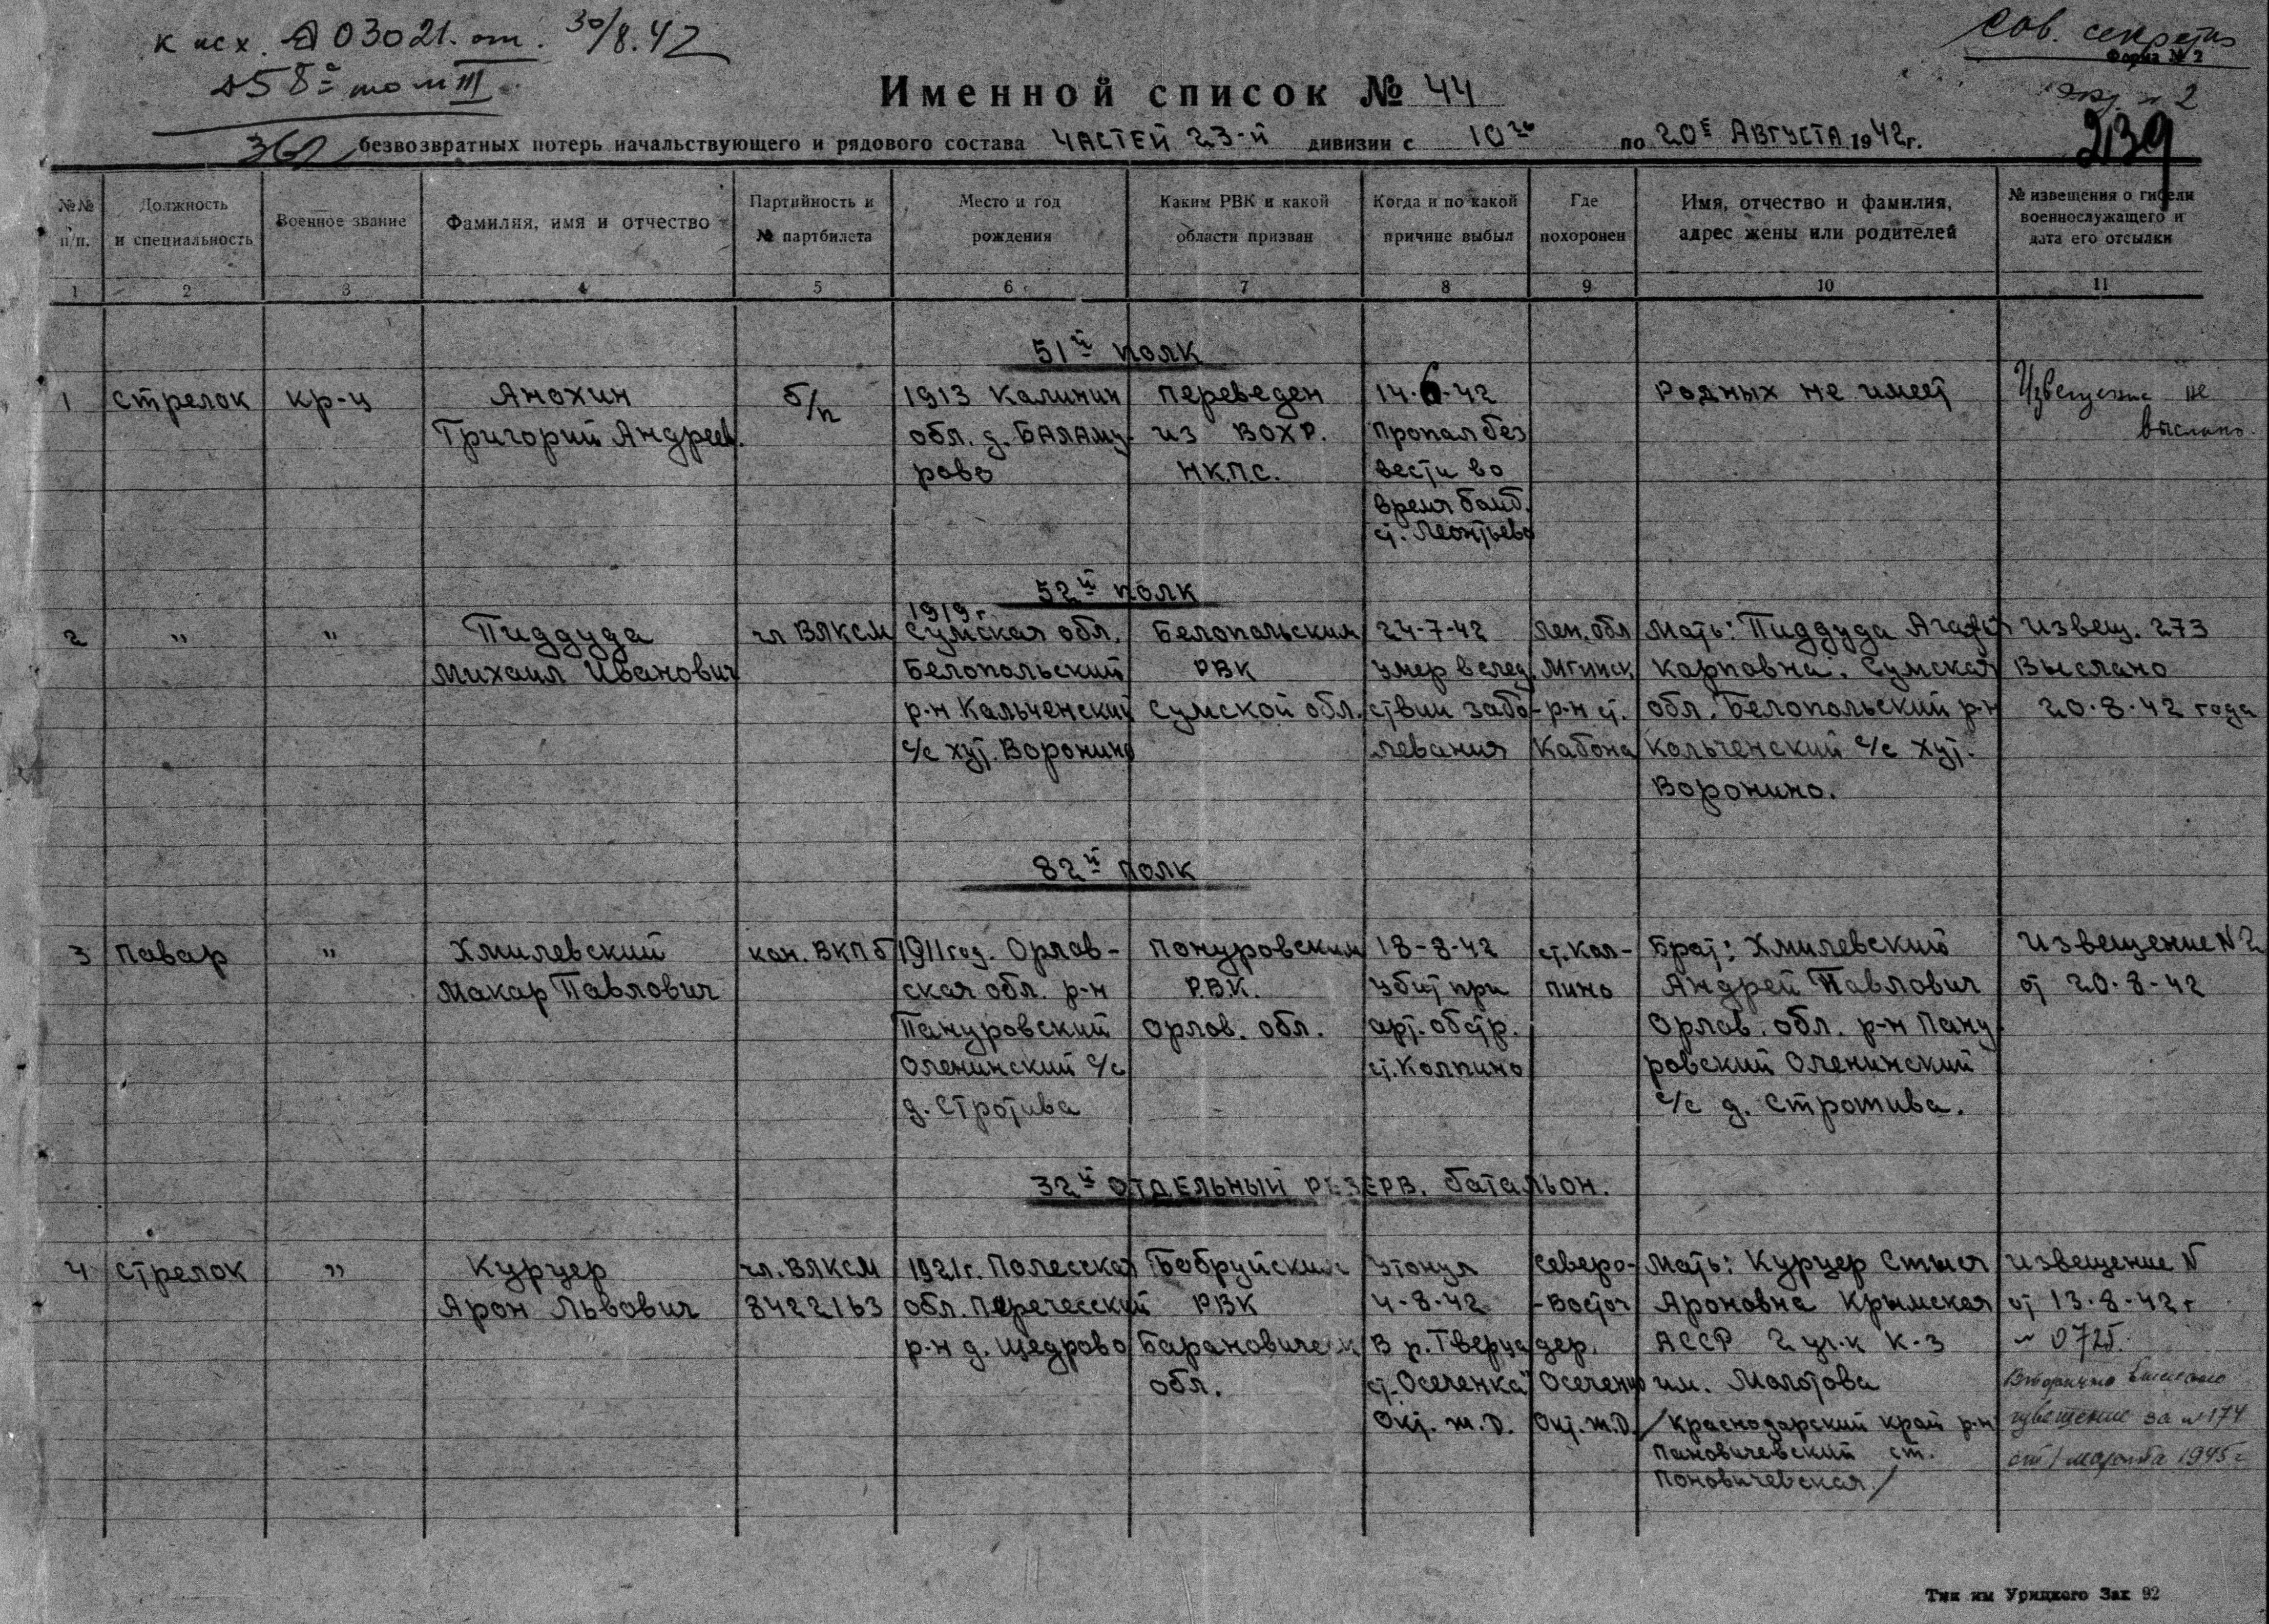 к исх. 03021. от. 30/8.42
58 том III
Сов. секретно
Форма № 2
экз. № 2
239
Именной список № 44
безвозвратных потерь начальствующего и рядового состава ЧАСТЕЙ 23-й дивизии с 10го по 20е АВГУСТА 1942г.
№№ п/п.
Должность и специальность
Военное звание
Фамилия, имя и отчество
Партийность и № партбилета
Место и год рождения
Каким РВК и какой области призван
Когда и по какой причине выбыл
Где похоронен
Имя, отчество и фамилия, адрес жены или родителей
№ извещения о гибели военнослужащего и дата его отсылки
1 2 3 4 5 6 7 8 9 10 11
51й полк
1 стрелок кр-ц Анохин б/п 1913 Калинин переведен 14.6.42 Родных не имеет Извещение не
Григорий Андреев. обл. д. БАЛАМу- из ВОХР. Пропал без выслано.
рово НКПС. вести во
время бомб.
ст. Леонтьево
52й полк
1919г.
2 " " Пиддуда чл ВЛКСМ Сумская обл. Белопольским 24-7-42 Лен. обл Мать: Пиддуда Извещ. 273
Михаил Иванович Белопольский РВК Умер вслед- Мгинск Карповна. Сумская Выслано
р-н Кальченский Сумской обл. ствии забо- р-н ст. обл. Белопольский р-н 20.8.42 года
с/с хут. Воронино левания Кабона Кольченский с/с хут.
Воронино.
82й полк
3 Павар " Хмилевский кан. ВКПб 1911 год. Орлов- Понуровским 18-8-42 ст. Кол- Брат: Хмилевский Извещение N 2
Макар Павлович ская обл. р-н Р.В.К. Убит при пино Андрей Павлович от 20.8-42
Пануровский Орлов. обл. арт. обстр. Орлов. обл. р-н Пану
Оленинский с/с ст. Колпино ровский Оленинский
д. Стротива с/с д. Стротива.
32й ОТДЕЛЬНЫЙ РЕЗЕРВ. батальон.
4 стрелок " Курцер чл. ВЛКСМ 1921г. Полесская Бобруйским Утонул Северо- Мать: Курцер Стыся Извещение N
Арон Львович 8422163 обл. РВК 4-8-42 -Восточ Ароновна Крымская от 13.8-42г
р-н д. Щедрово Барановическ В р. Тверца дер. АССР 2 уч.к К-з № 0725.
обл. ст. Осеченка Осеченко им. Молотова Вторично выслано
Окт. ж.д. Окт. ж.д. /Краснодарский край р-н извещение за № 174
Пановичевский ст. от 1 марта 1945г
Поновичевская/
Тип им Урицкого Зак 92